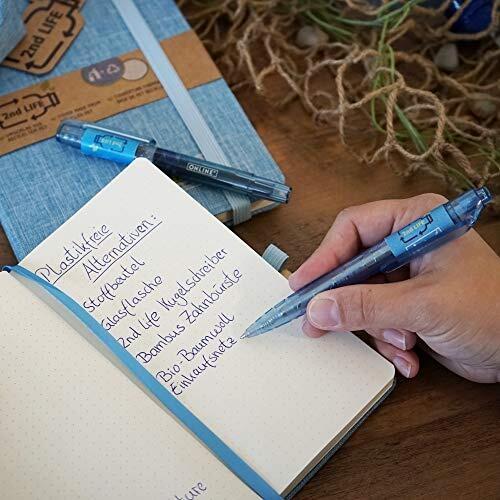 2nd LIFE
2nd LIFE
ONLINE
2nd LIFE
Plastikfreie
Alternativen:
Stoffbeutel
Glasflasche
2nd Life Kugelschreiber
Bambus Zahnbürste
Bio-Baumwoll
Einkaufsnetz